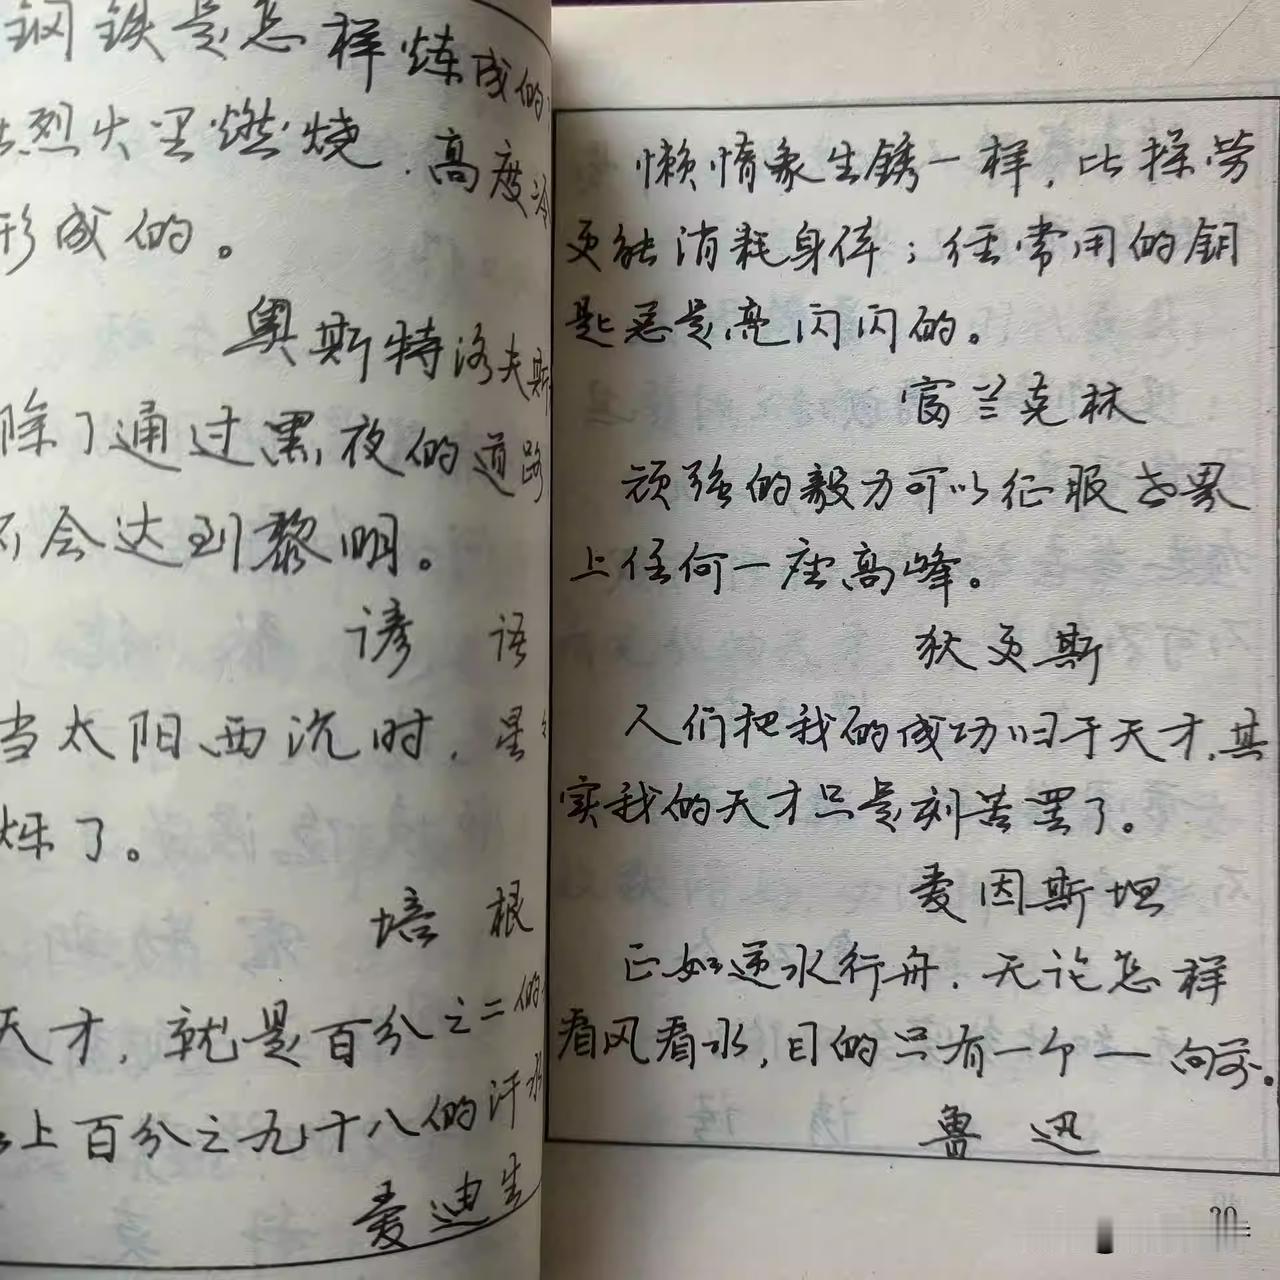 钢铁是怎样炼成的
烈火里燃烧，高度冷
形成的。
奥斯特洛夫斯
除了通过黑夜的道路
不会达到黎明。
谚 语
当太阳西沉时，星
烁了。
培 根
天才，就是百分之二的
上百分之九十八的汗水
爱迪生
懒惰象生锈一样，比操劳
更能消耗身体；经常用的钥
匙总是亮闪闪的。
富兰克林
顽强的毅力可以征服世界
上任何一座高峰。
狄更斯
人们把我的成功归于天才，其
实我的天才只是刻苦罢了。
爱因斯坦
正如逆水行舟，无论怎样
看风看水，目的只有一个一向前。
鲁 迅